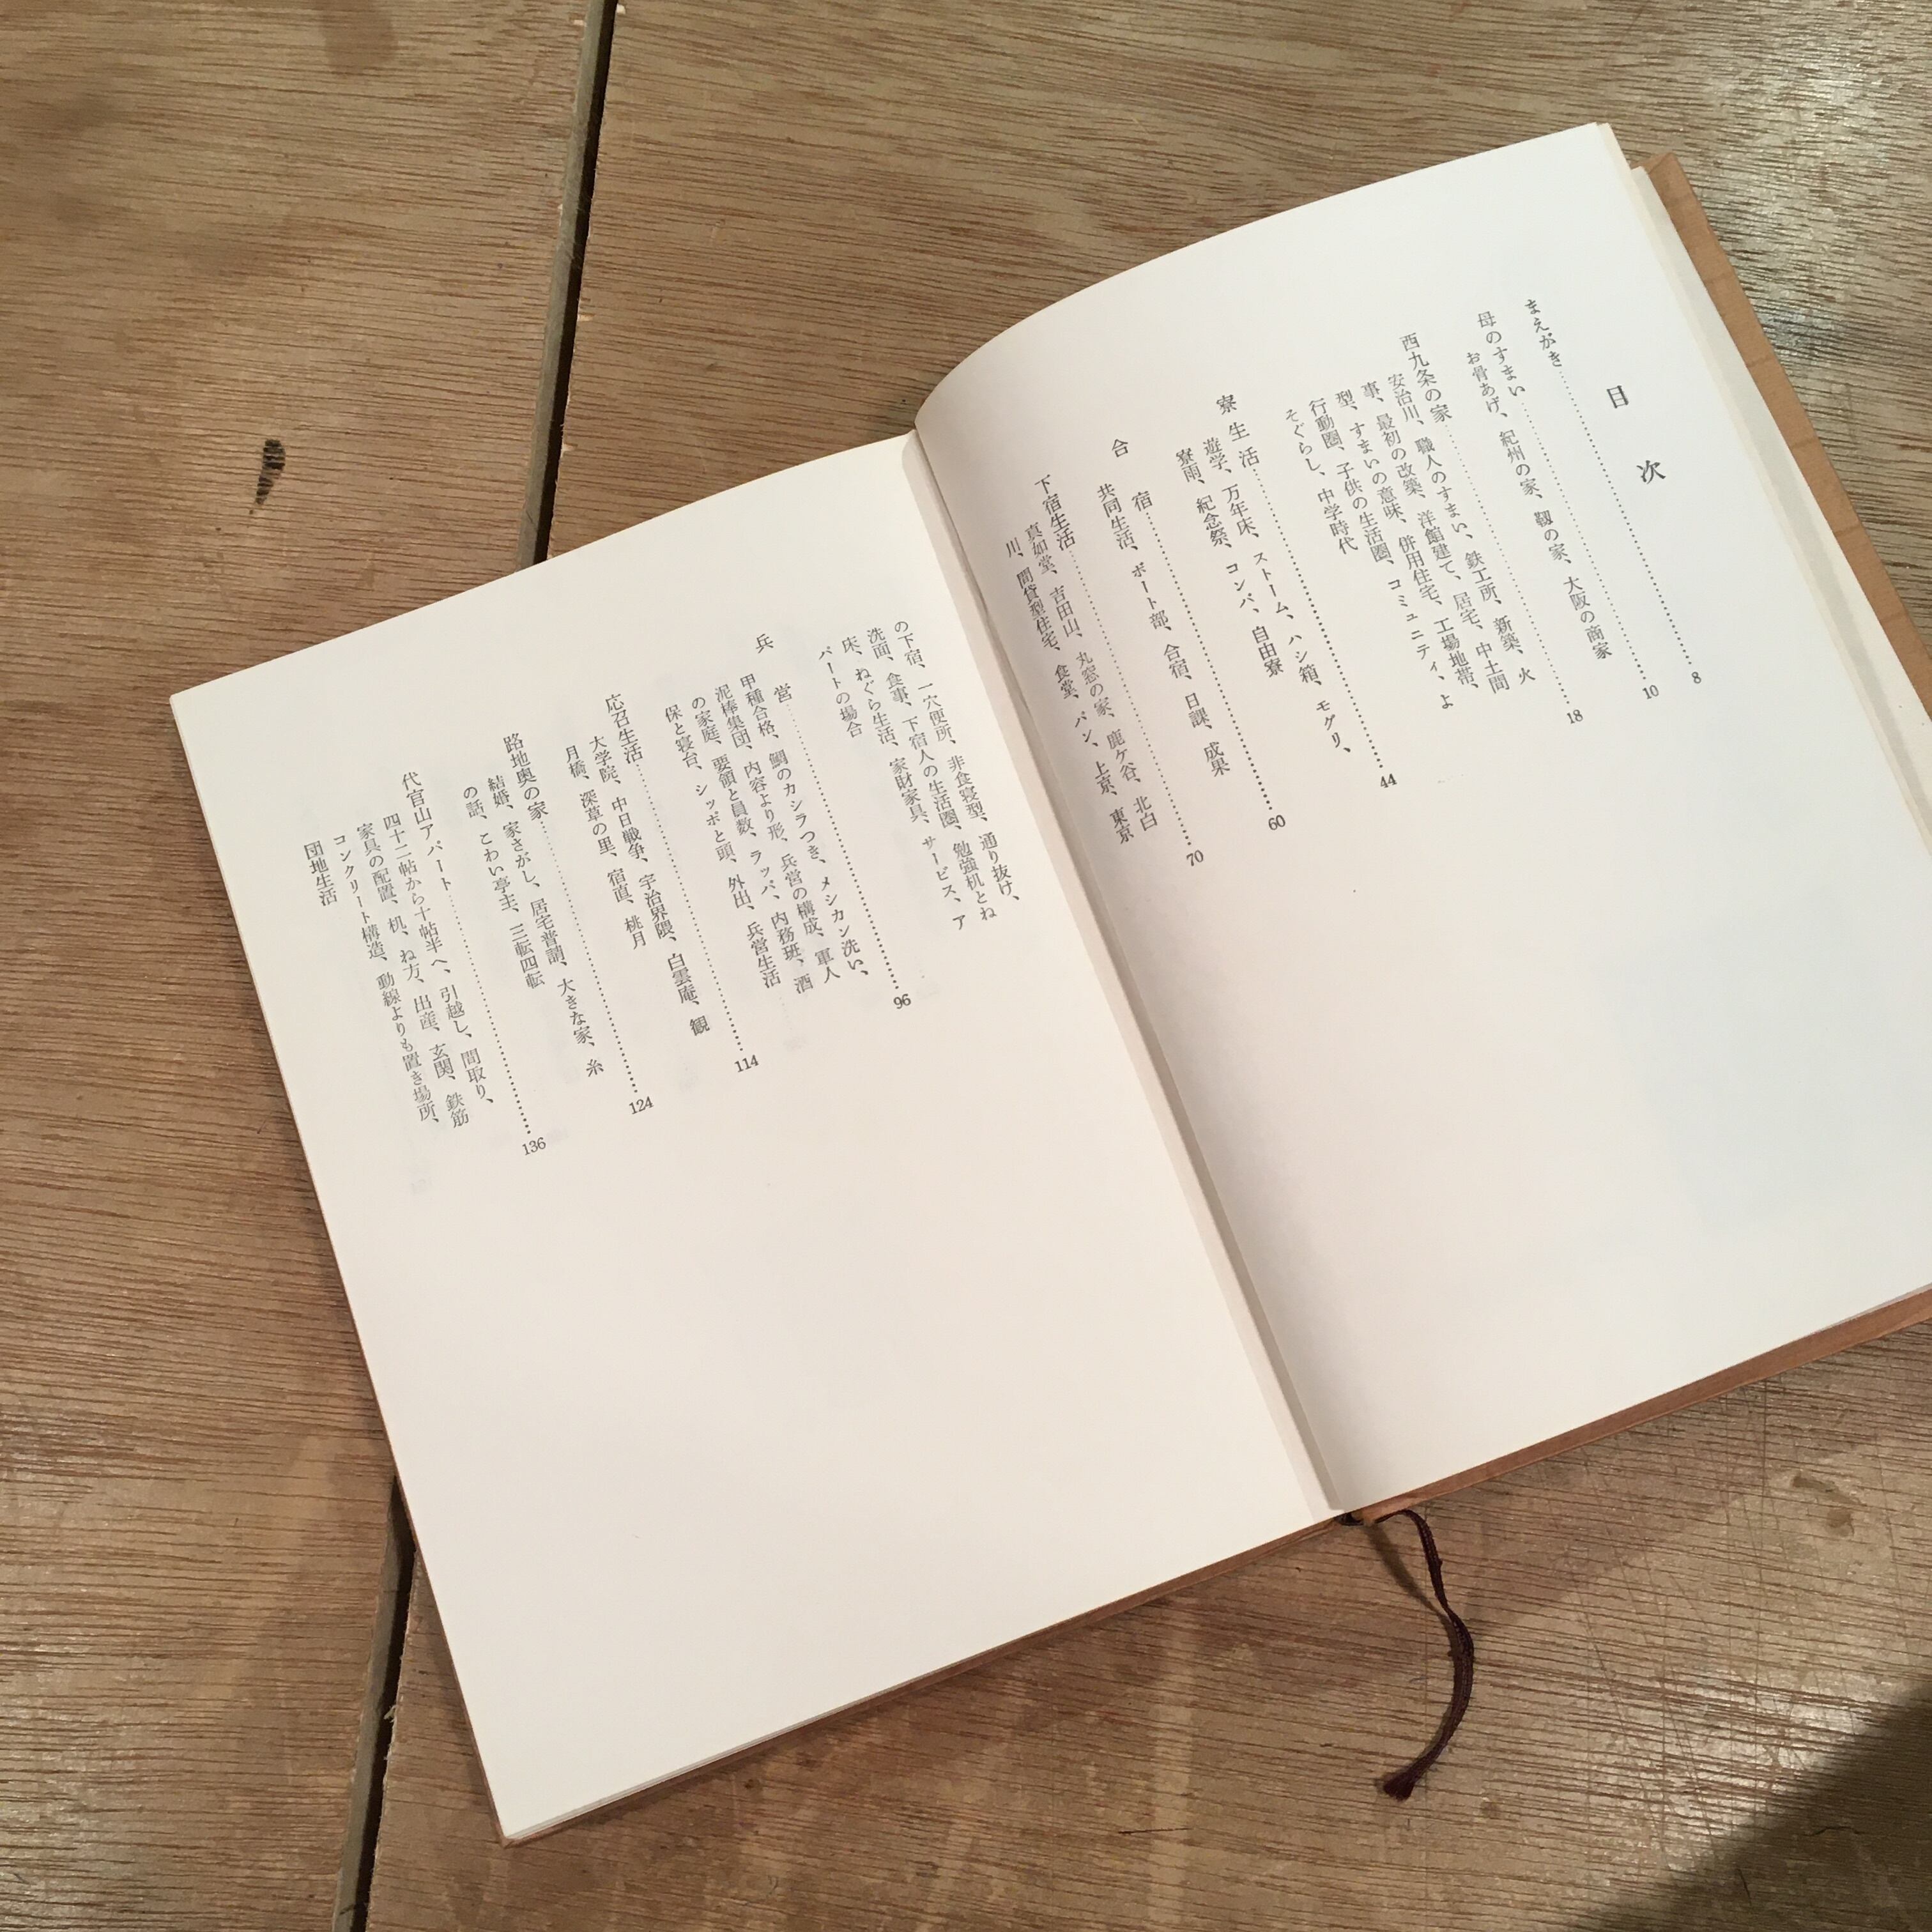 目次
まえがき……8
母のすまい……10
お骨あげ、紀州の家、靱の家、大阪の商家
西九条の家……18
安治川、職人のすまい、鉄工所、新築、火
事、最初の改築、洋館建て、居宅、中土間
型、すまいの意味、併用住宅、工場地帯、
行動圏、子供の生活圏、コミュニティ、よ
そぐらし、中学時代
寮生活……44
遊学、万年床、ストーム、ハシ箱、モグリ、
寮雨、紀念祭、コンパ、自由寮
合宿……60
共同生活、ボート部、合宿、日課、成果
下宿生活……70
真如堂、吉田山、丸窓の家、鹿ケ谷、北白
川、間貸型住宅、食堂、パン、上京、東京
の下宿、一穴便所、非食寝型、通り抜け、
洗面、食事、下宿人の生活圏、勉強机とね
床、ねぐら生活、家財家具、サービス、ア
パートの場合
兵営……96
甲種合格、鯛のカシラつき、メシカン洗い、
泥棒集団、内容より形、兵営の構成、軍人
の家庭、要領と員数、ラッパ、内務班、酒
保と寝台、シッポと頭、外出、兵営生活
応召生活……114
大学院、中日戦争、宇治界隈、白雲庵、観
月橋、深草の里、宿直、桃月
路地奥の家……124
結婚、家さがし、居宅普請、大きな家、糸
の話、こわい亭主、三転四転
代官山アパート……136
四十二帖から十帖半へ、引越し、間取り、
家具の配置、机、ね方、出産、玄関、鉄筋
コンクリート構造、動線よりも置き場所、
団地生活